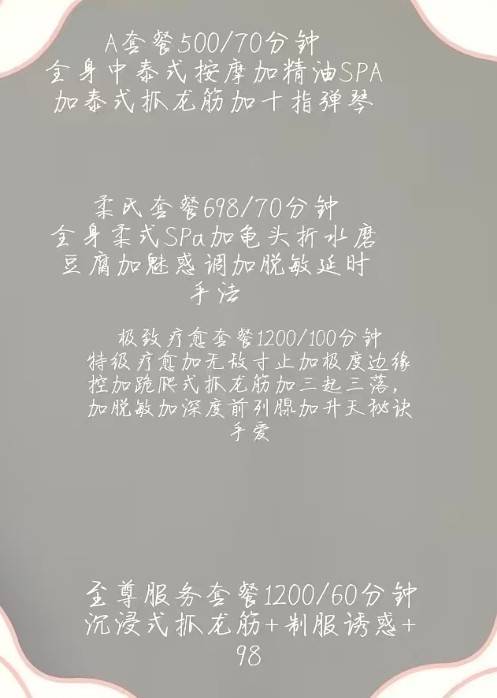 A套餐500/70分钟
全身中泰式按摩加精油SPA
加泰式抓龙筋加十指弹琴
柔氏套餐698/70分钟
全身柔式SPa加龟头折水磨
豆腐加魅惑调加脱敏延时
手法
极致疗愈套餐1200/100分钟
特级疗愈加无敌寸止加极度边缘
控加跪爬式抓龙筋加三起三落，
加脱敏加深度前列腺加升天秘诀
手爱
至尊服务套餐1200/60分钟
沉浸式抓龙筋+制服诱惑+
98